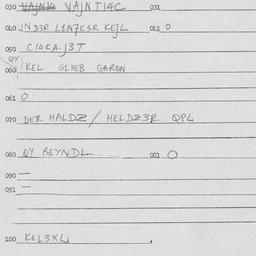 030 VAJNTI4C 031
040 IND3R L1N7KSR KEJL 041 O
050 CI4KA.J3T
060 KEL GLHEB GARON
061 O
070 DER HALDZ / HELDZ3R QPL
080 QY BEYNDL 081 O
090 —
091 —
100 KEL3XL